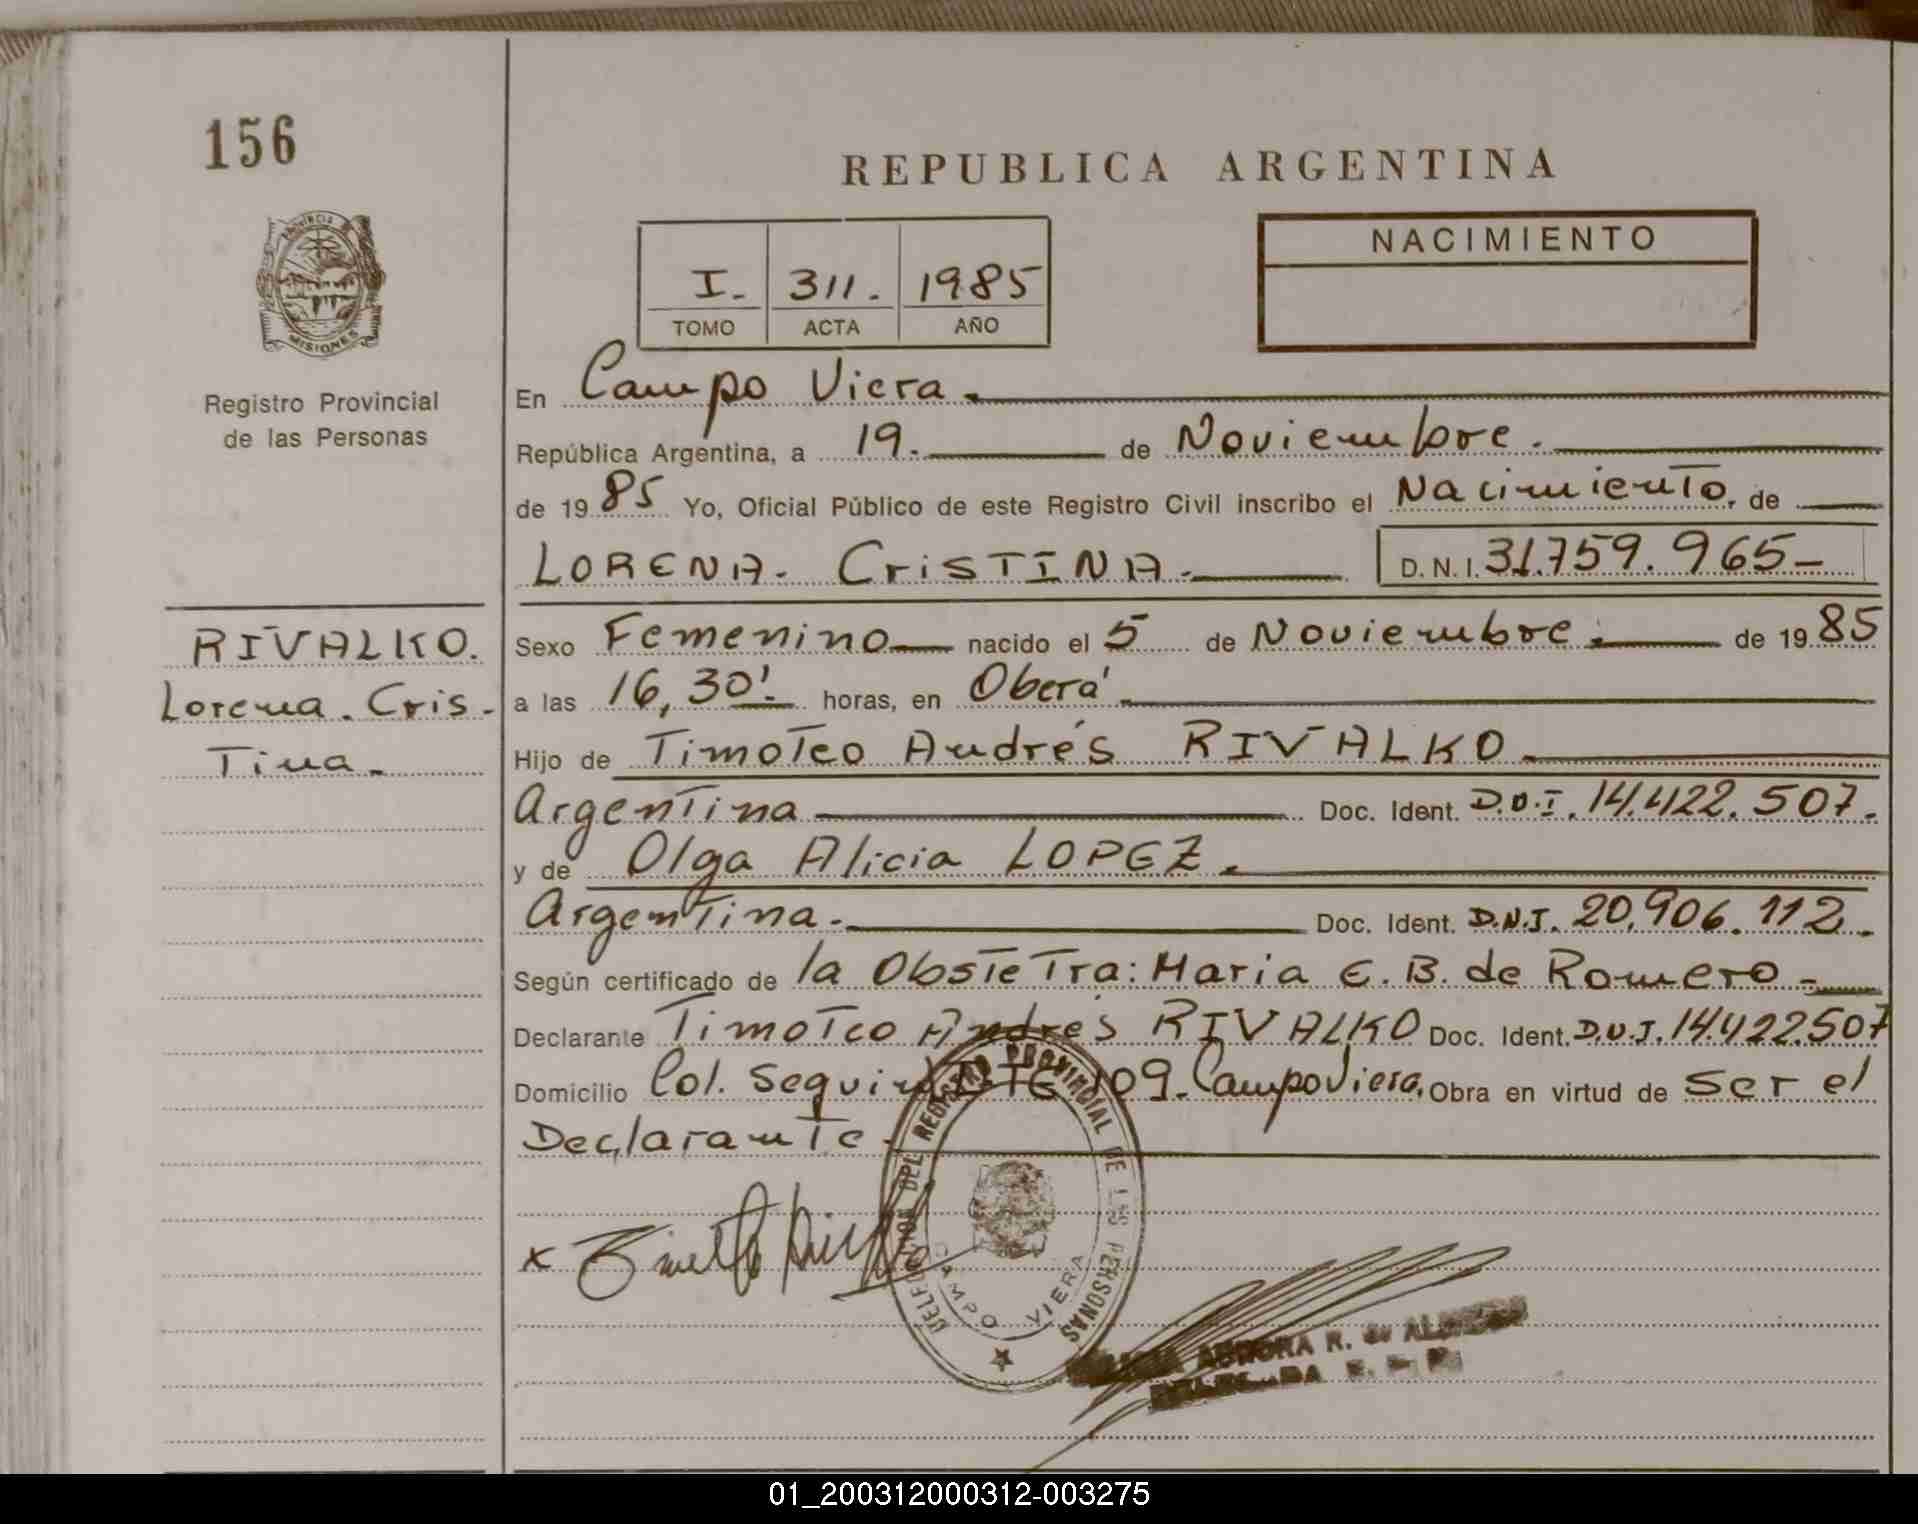 156
PROVINCIA DE
MISIONES
Registro Provincial
de las Personas
RIVALKO.
Lorena. Cris-
Tina-
REPUBLICA ARGENTINA
I- 311. 1985
TOMO ACTA AÑO
NACIMIENTO
En Campo Viera.
República Argentina, a 19. de Noviembre.
de 1985 Yo, Oficial Público de este Registro Civil inscribo el Nacimiento, de
LORENA. CrisTINA.- D.N.I. 31.759.965-
Sexo Femenino nacido el 5 de Noviembre. de 1985
a las 16,30'. horas, en Oberá
Hijo de Timoteo Andrés RIVALKO.
Argentina Doc. Ident. D.N.I. 14.422.507.
y de Olga Alicia LOPEZ.
Argentina. Doc. Ident. D.N.I. 20.906.112.
Según certificado de la Obstetra: Maria E. B. de Romero-
Declarante Timoteo Andrés RIVALKO Doc. Ident. D.N.I. 14.422.507
Domicilio Col. Seguin LTE 109. Campo Viera, Obra en virtud de ser el
Declarante.
x
DELEGACION DEL REGISTRO PROVINCIAL DE LAS PERSONAS
CAMPO VIERA
AURORA R. de
01_200312000312-003275